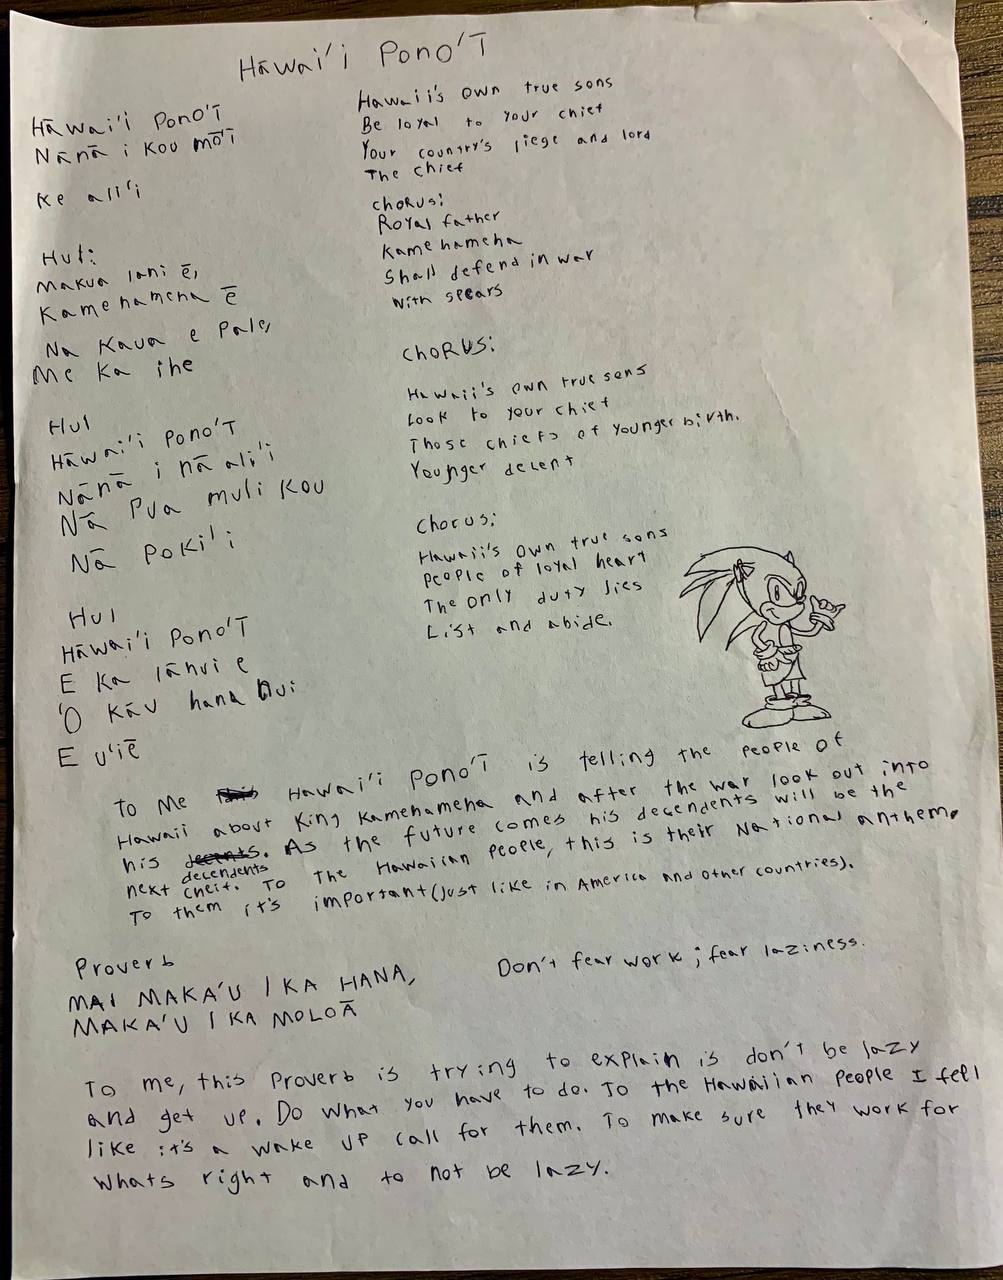 Hāwai'i Pono'ī
Hāwai'i Pono'ī
Nānā i kou mō'ī
Ke ali'i
Hui:
Makua lani ē,
Kamehameha ē
Na Kaua e Pale,
Me ka ihe
Hui
Hāwai'i Pono'ī
Nānā i nā ali'i
Nā Pua muli kou
Nā Poki'i
Hui
Hāwai'i Pono'ī
E ka lāhui e
'O Kāu hana nui
E u'iē
Hawaii's own true sons
Be loyal to your chief
Your country's liege and lord
The chief
Chorus:
Royal father
Kamehameha
Shall defend in war
With spears
Chorus:
Hawaii's own true sons
Look to your chief
Those chiefs of younger birth.
Younger decent
Chorus:
Hawaii's own true sons
People of loyal heart
The only duty lies
List and abide.
To me Hawai'i Pono'ī is telling the people of
Hawaii about King Kamehameha and after the war look out into
his decendents. As the future comes his decendents will be the
next cheif. To The Hawaiian People, this is their National anthem.
To them it's important (just like in America and other countries).
Proverb
MAI MAKA'U I KA HANA,
MAKA'U I KA MOLOĀ
Don't fear work; fear laziness.
To me, this Proverb is trying to explain is don't be lazy
and get up. Do what you have to do. To the Hawaiian people I feel
like it's a wake up call for them. To make sure they work for
whats right and to not be lazy.